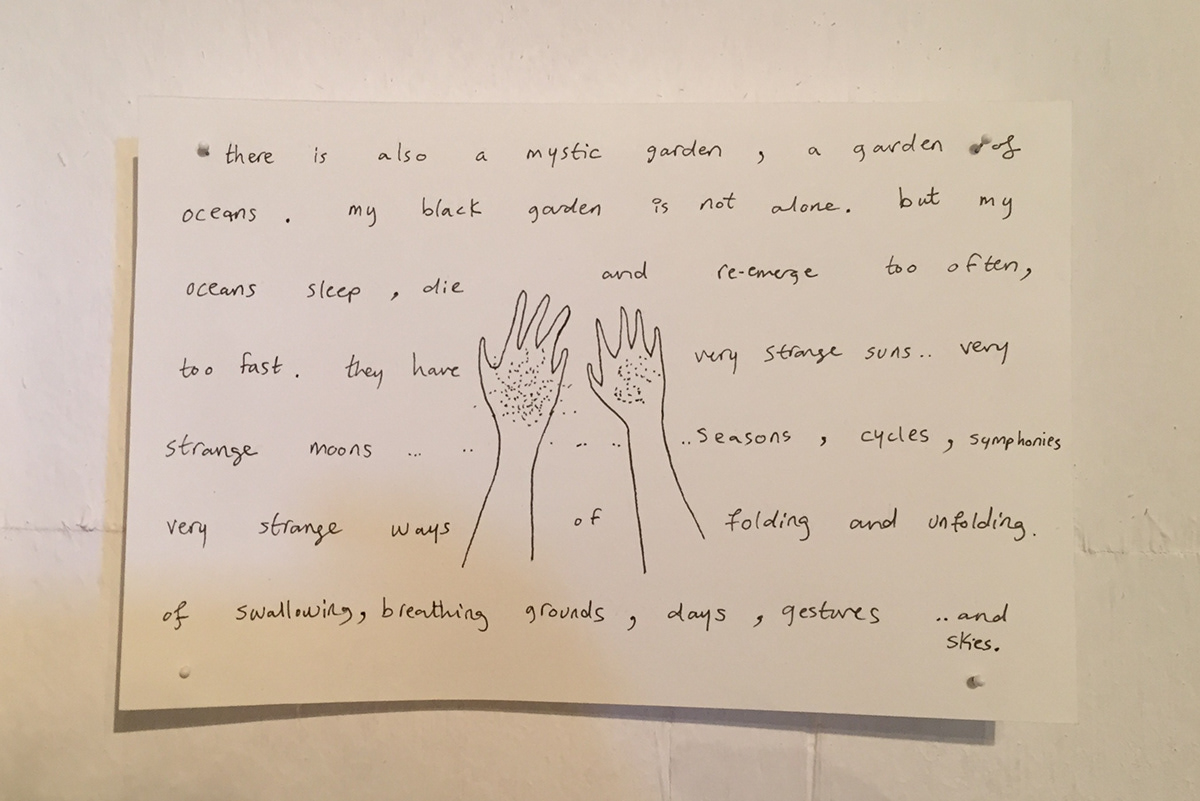 there is also a mystic garden , a garden of
oceans . my black garden is not alone. but my
oceans sleep , die and re-emerge too often,
too fast . they have very strange suns.. very
strange moons ... .. . .. .. ..seasons , cycles , symphonies
very strange ways of folding and unfolding.
of swallowing, breathing grounds , days , gestures ..and
skies.